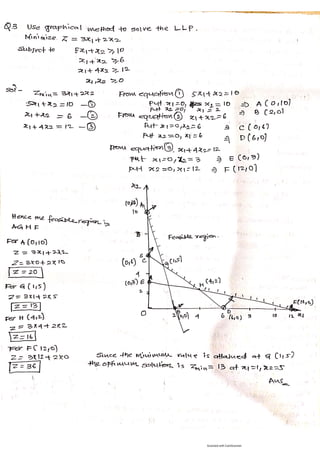 Q.3 Use graphical method to solve the L.L.P.
Minimise Z = 3x1+2x2
Subject to 5x1+x2 ≥ 10
x1+x2 ≥ 6
x1+4x2 ≥ 12
x1,x2 ≥ 0
Sol- Zmin = 3x1+2x2
5x1+x2 = 10 —①
x1+x2 = 6 —②
x1+4x2 = 12 —③
From equation ① 5x1+x2=10
Put x1=0, x2=10 ⇒ A (0,10)
Put x2=0, x1=2 ⇒ B (2,0)
From equation ② x1+x2=6
Put x1=0, x2=6 ⇒ C (0,6)
Put x2=0, x1=6 ⇒ D (6,0)
From equation ③ x1+4x2=12
Put x1=0, x2=3 ⇒ E (0,3)
Put x2=0, x1=12 ⇒ F (12,0)
x2
(0,10) A
10
8
Feasible region.
(0,6) C
G (1,5)
4
(0,3) E
H (4,2)
2
F(12,0)
O
2 (2,0) 4 6 (6,0) 8 10 12 x1
Hence the feasible region is
AGHF
For A (0,10)
Z = 3x1+2x2
Z = 3x0+2x10
Z = 20
For G (1,5)
Z = 3x1+2x5
Z = 13
For H (4,2)
Z = 3x4+2x2
Z = 16
For F (12,0)
Z = 3x12+2x0
Z = 36
Since the minimum value is attained at G (1,5)
the optimum solution is Zmin = 13 at x1=1, x2=5
Ans
Scanned with CamScanner